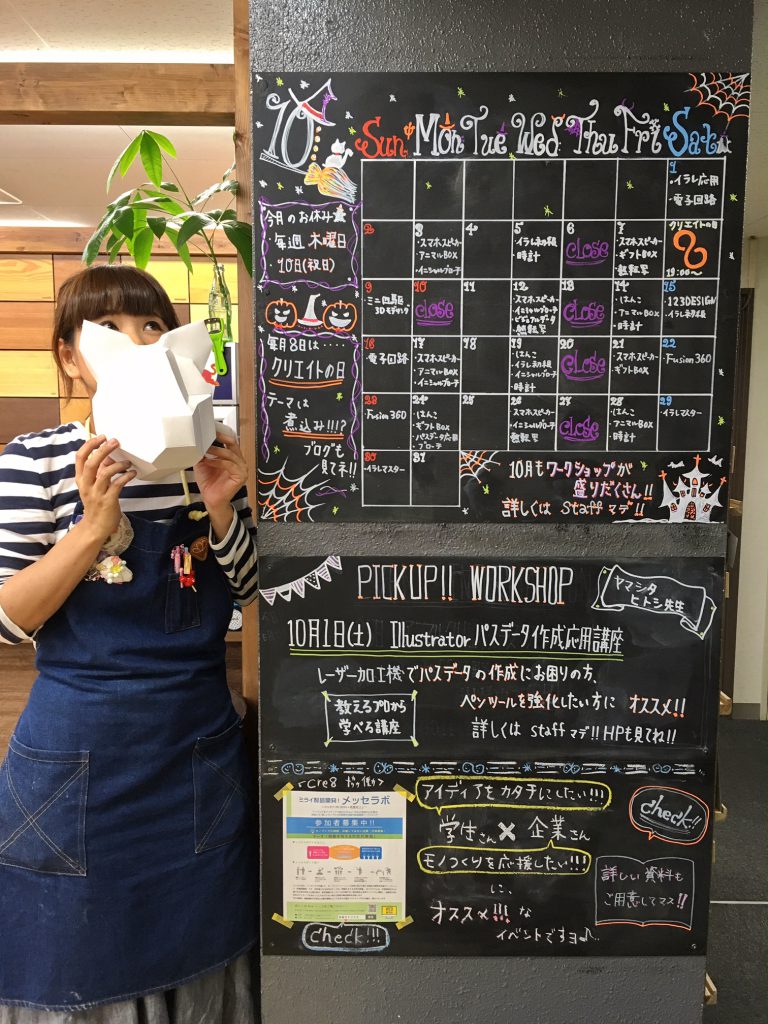 10
Sun Mon Tue Wed Thu Fri Sat
今月のお休み
・毎週 木曜日
10日(祝日)
毎月8日は・・・・
クリエイトの日
テーマは
煮込み!!!?
ブログも
見てネ!!
1
・イラレ応用
・電子回路
2
3
・スマホスピーカー
・アニマルBOX
・イニシャルブローチ
4
5
・イラレ初級
・時計
6
CLOSE
7
・スマホスピーカー
・ギフトBOX
クリエイトの日
8
19:00〜
9
・ミニ四駆
3Dモデリング
10
CLOSE
11
12
・スマホスピーカー
・イニシャルブローチ
13
CLOSE
14
・はんこ
・アニマルBOX
・時計
15
・123DESIGN
・イラレ初級
16
・電子回路
17
・スマホスピーカー
・アニマルBOX
・イニシャルブローチ
18
19
・はんこ
・イラレ初級
・イニシャルブローチ
20
CLOSE
21
・スマホスピーカー
・ギフトBOX
22
・Fusion360
23
・Fusion360
24
・はんこ
・ギフトBOX
25
26
・スマホスピーカー
27
CLOSE
28
・はんこ
・アニマルBOX
・時計
29
・イラレマスター
30
・イラレマスター
31
10月もワークショップが
盛りだくさん!!
詳しくは staffマデ!!
PICKUP!! WORKSHOP
ヤマシタ
ヒトシ先生
10月1日(土) Illustratorパスデータ作成応用講座
レーザー加工機でパスデータの作成にお困りの方、
ペンツールを強化したい方に オススメ!!
教えるプロから
学べる講座
詳しくは staffマデ!! HPも見てね!!
アイディアをカタチにしたい!!!
学生さん×企業さん
モノづくりを応援したい!!!
に、
オススメ!!! な
イベントですヨ♪
check!!
詳しい資料も
ご用意してマス!!
ミライ製品開発! メッセラボ
参加者募集中!!
check!!!